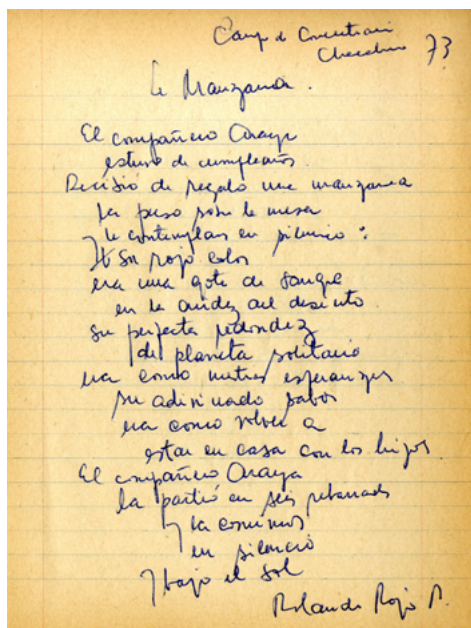 Campo de Concentración
Chacabuco 73
La Manzana.
El compañero Araya
estuvo de cumpleaños.
Recibió de regalo una manzana
la puso sobre la mesa
y la contemplan en silencio:
Su rojo color
era una gota de sangre
en la aridez del desierto.
Su perfecta redondez
de planeta solitario
era como nuestras esperanzas
su adivinado sabor
era como volver a
estar en casa con los hijos.
El compañero Araya
la partió en seis rebanadas
y la comimos
en silencio
bajo el sol
Rolando Rojo R.